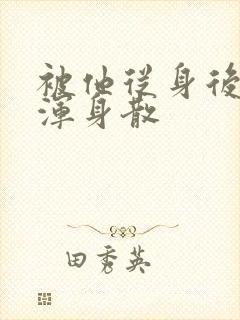 被他从身後
渾身散
田秀英